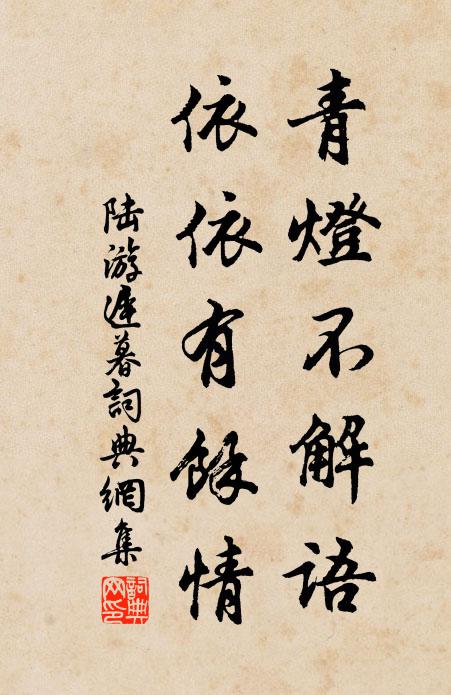 青燈不解語
依依有餘情
陆游遲暮詞典網集
詞典